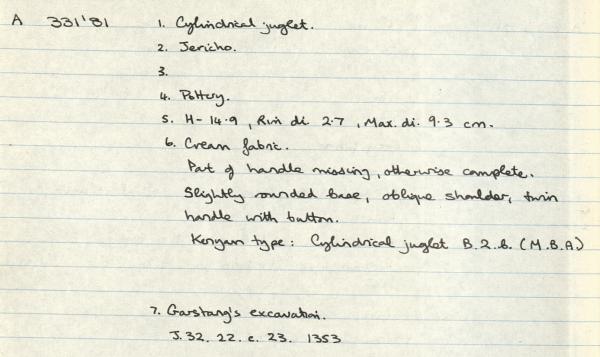 A 331'81 1. Cylindrical juglet.
2. Jericho.
3.
4. Pottery.
5. H- 14.9, Rim di. 2.7, Max. di. 9.3 cm.
6. Cream fabric.
Part of handle missing, otherwise complete.
Slightly rounded base, oblique shoulder, twin
handle with button.
Kenyon type: Cylindrical juglet B.2.b. (M.B.A)
7. Garstang's excavation.
J.32. 22. c. 23. 1353